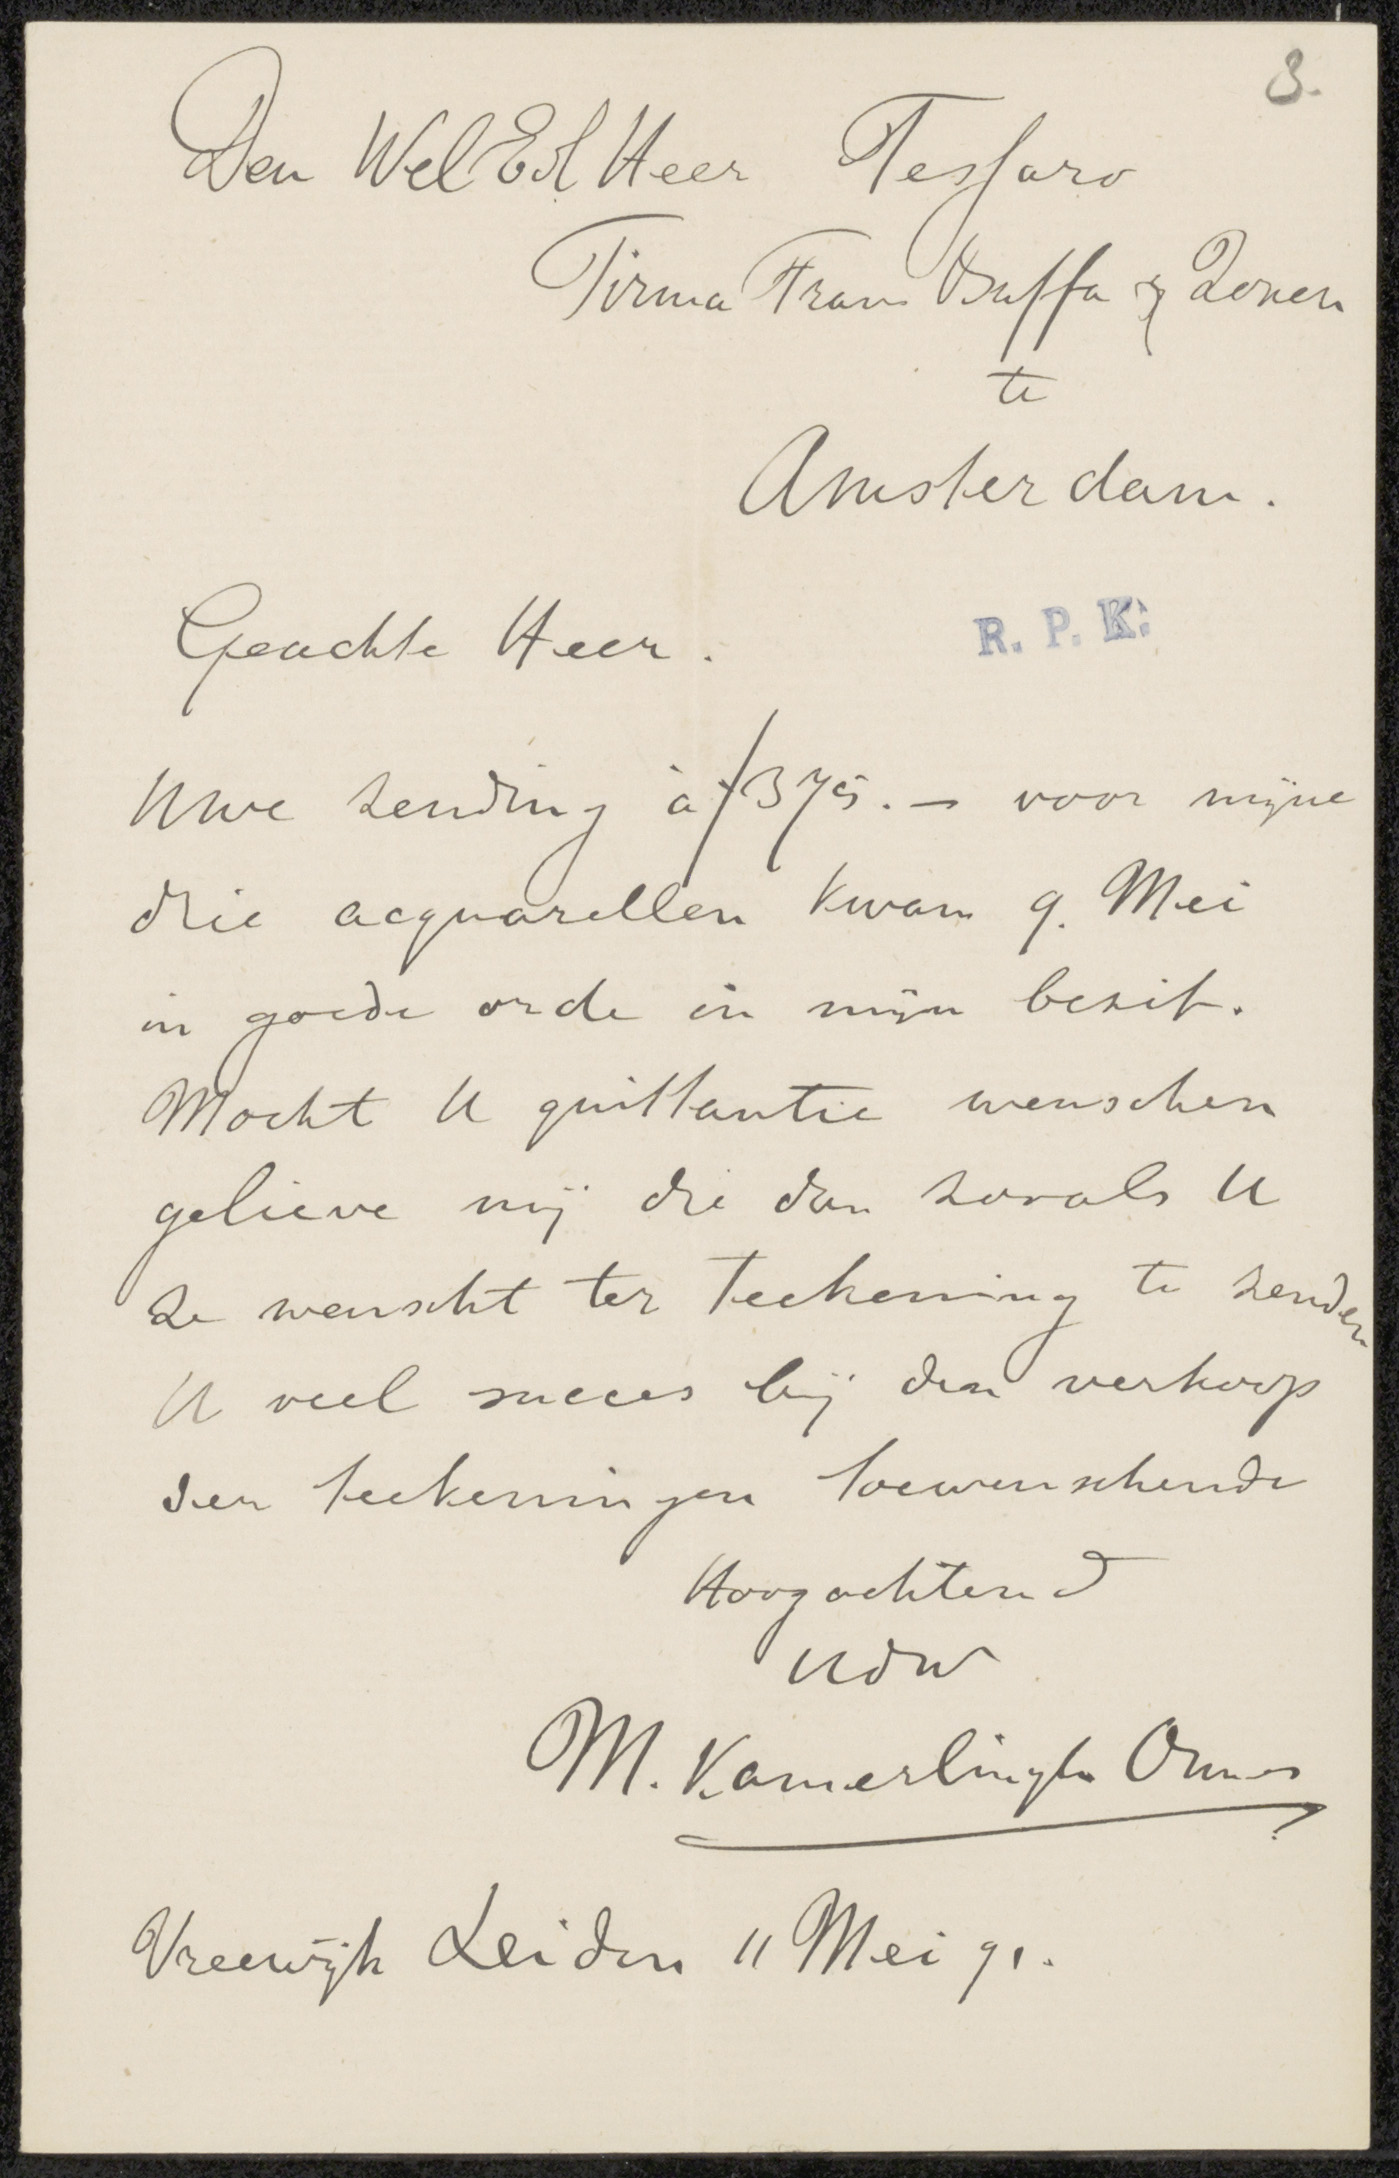 3.
Den Wel Ed Heer Tessaro
Firma Frans Buffa & Zonen
te
Amsterdam.
Geachte Heer.
R. P. K.
Uwe zending à ƒ 375.- voor mijne
drie acquarellen kwam 9. Mei
in goede orde in mijn bezit.
Mocht U quittantie wenschen
gelieve mij die dan zooals U
ze wenscht ter teekening te zenden
U veel succes bij den verkoop
der teekeningen toewenschende
Hoogachtend
UdW
M. Kamerlingh Onnes
Vreewijk Leiden 11 Mei 91.